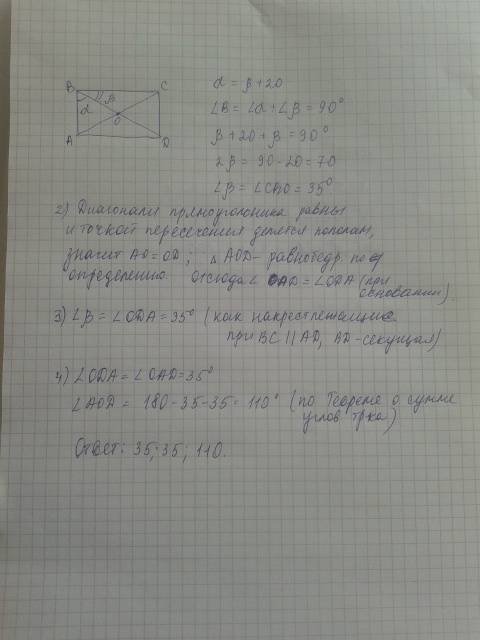 B C
α β
O
A D
α = β + 20
∠B = ∠α + ∠β = 90°
β + 20 + β = 90°
2β = 90 - 20 = 70
∠β = ∠CBO = 35°
2) Диагонали прямоугольника равны
и точкой пересечения делятся пополам,
значит AO = OD; △AOD - равнобедр. по
определению. Отсюда ∠OAD = ∠ODA (при
основании)
3) ∠β = ∠ODA = 35° (как накрестлежащие
при BC || AD, BD - секущая)
4) ∠ODA = ∠OAD = 35°
∠AOD = 180 - 35 - 35 = 110° (по Теореме о сумме
углов тр-ка)
Ответ: 35; 35; 110.